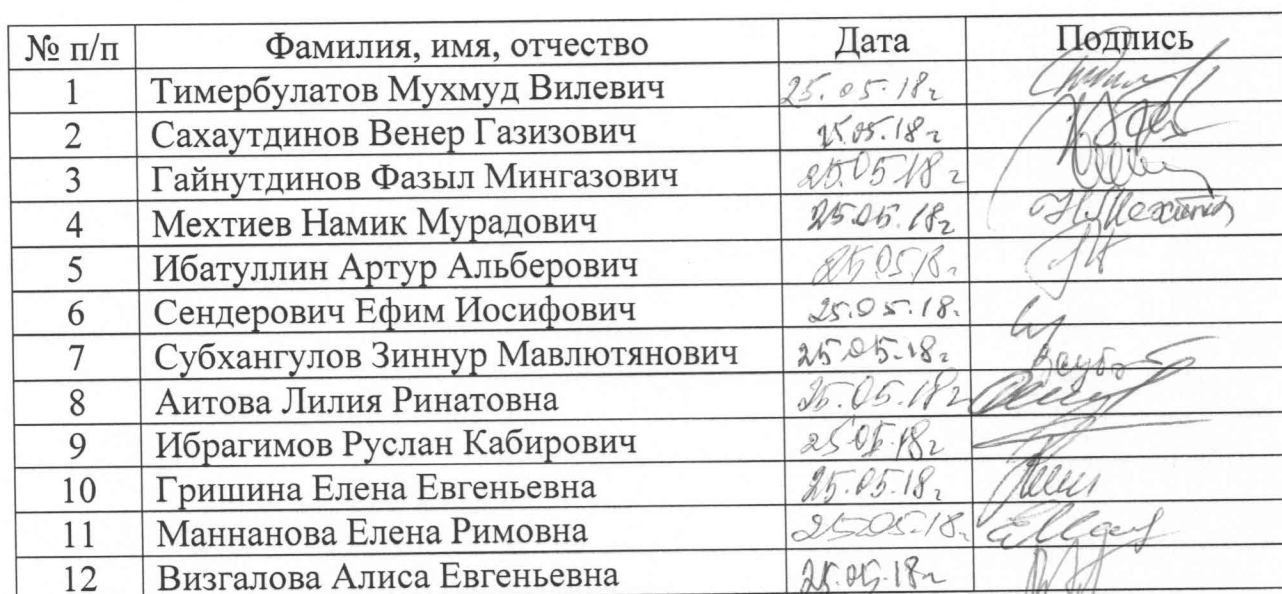 № п/п Фамилия, имя, отчество Дата Подпись
1 Тимербулатов Мухмуд Вилевич 25.05.18г
2 Сахаутдинов Венер Газизович 25.05.18г
3 Гайнутдинов Фазыл Мингазович 25.05.18г
4 Мехтиев Намик Мурадович 25.05.18г
5 Ибатуллин Артур Альберович 25.05.18г
6 Сендерович Ефим Иосифович 25.05.18г
7 Субхангулов Зиннур Мавлютянович 25.05.18г
8 Аитова Лилия Ринатовна 25.05.18г
9 Ибрагимов Руслан Кабирович 25.05.18г
10 Гришина Елена Евгеньевна 25.05.18г
11 Маннанова Елена Римовна 25.05.18г
12 Визгалова Алиса Евгеньевна 25.05.18г